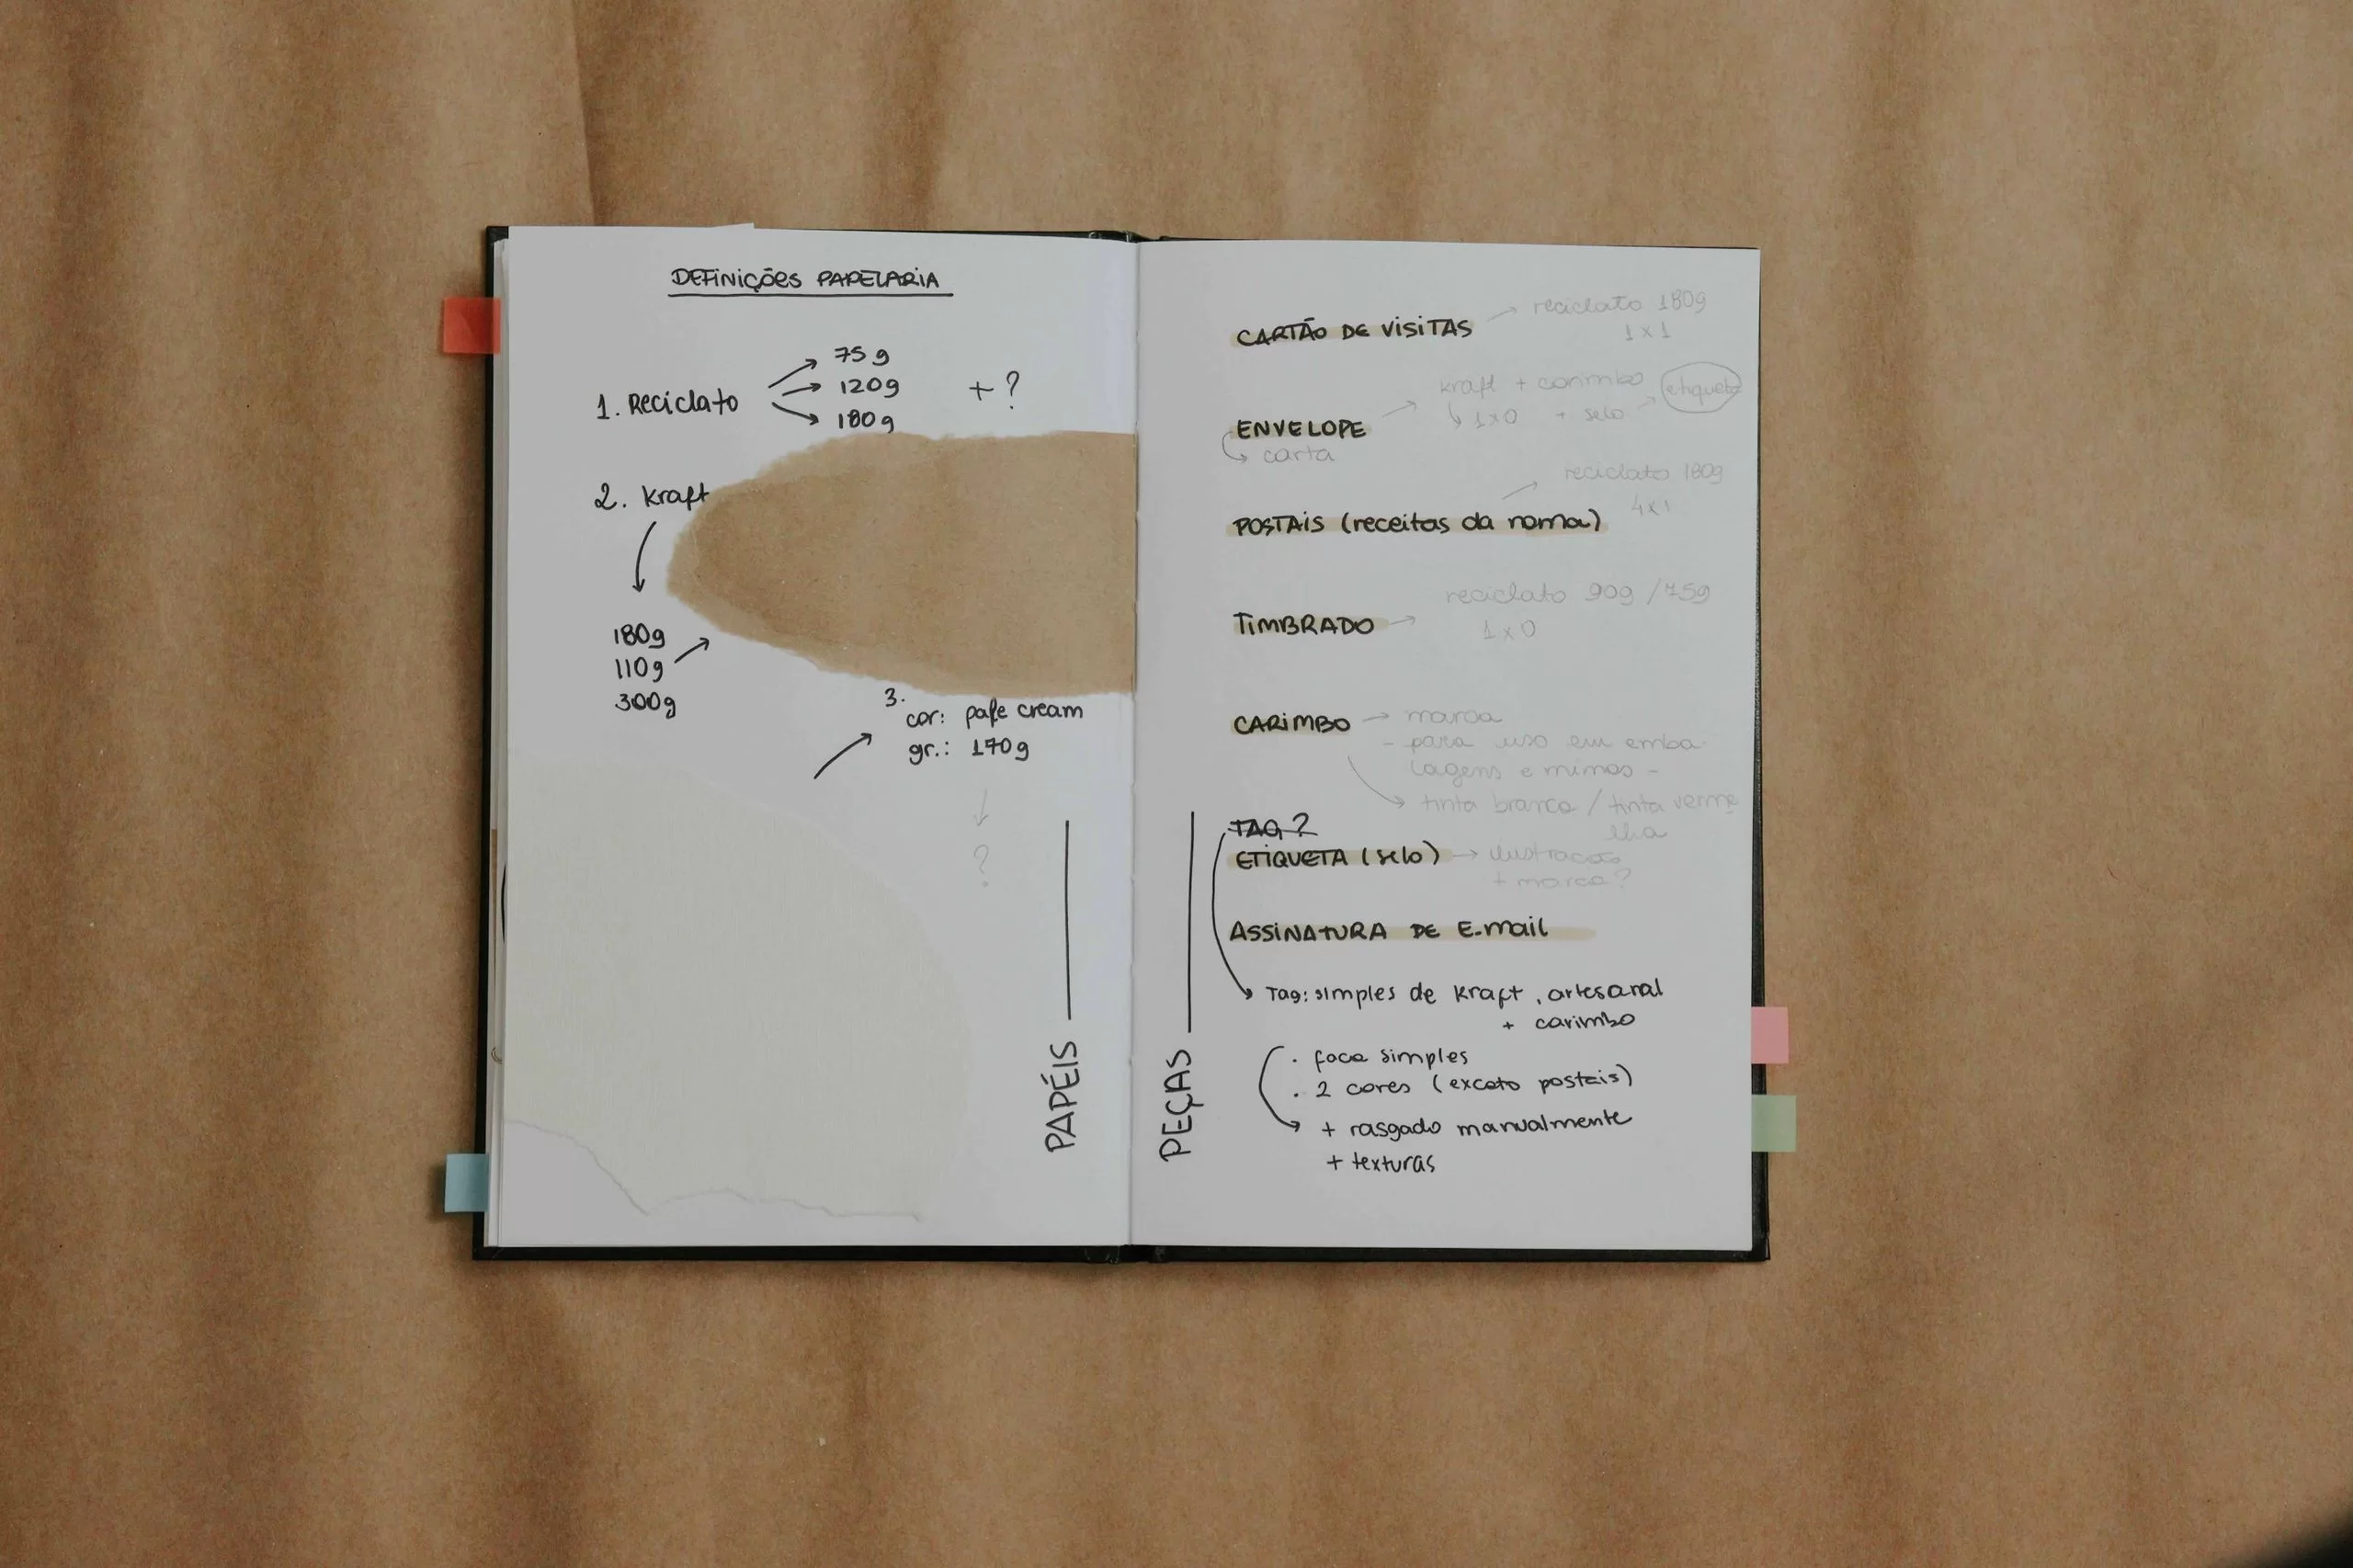 DEFINIÇÕES PAPELARIA
75g
1. Reciclato 120g + ?
180g
2. kraft
180g
110g
300g
3.
cor: pale cream
gr.: 170g
?
PAPÉIS
PEÇAS
CARTÃO DE VISITAS → reciclato 180g
1x1
ENVELOPE → kraft + carimbo etiqueta
1x0 + selo
carta
reciclato 180g
4x1
POSTAIS (receitas da noma)
TIMBRADO → reciclato 90g / 75g
1x0
CARIMBO → marca
- para uso em emba-
lagens e mimos -
tinta branca / tinta verme
lha
TAG?
ETIQUETA (selo) → ilustração
+ marca?
ASSINATURA DE E-mail
Tag: simples de kraft, artesanal
+ carimbo
. faca simples
. 2 cores (exceto postais)
+ rasgado manualmente
+ texturas